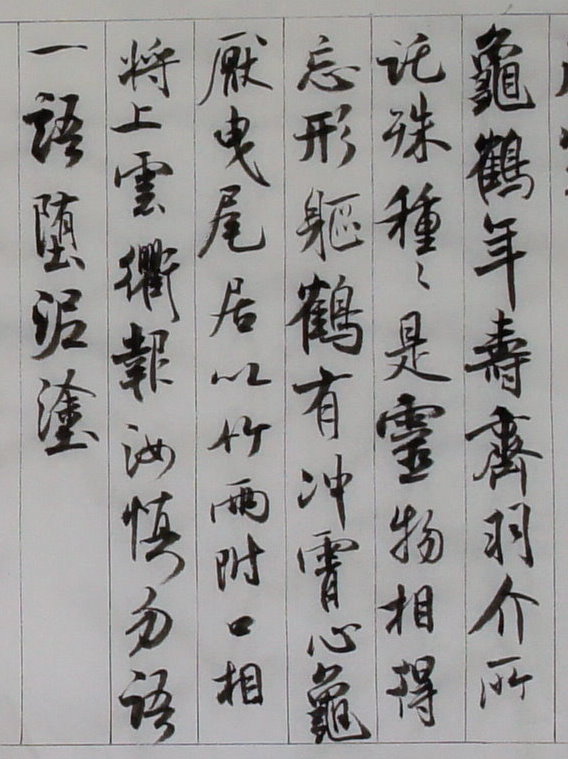 龜鶴年壽齊羽介所
託殊種〻是靈物相得
忘形軀鶴有冲霄心龜
厭曳尾居以竹兩附口相
將上雲衢報汝慎勿語
一語堕泥塗